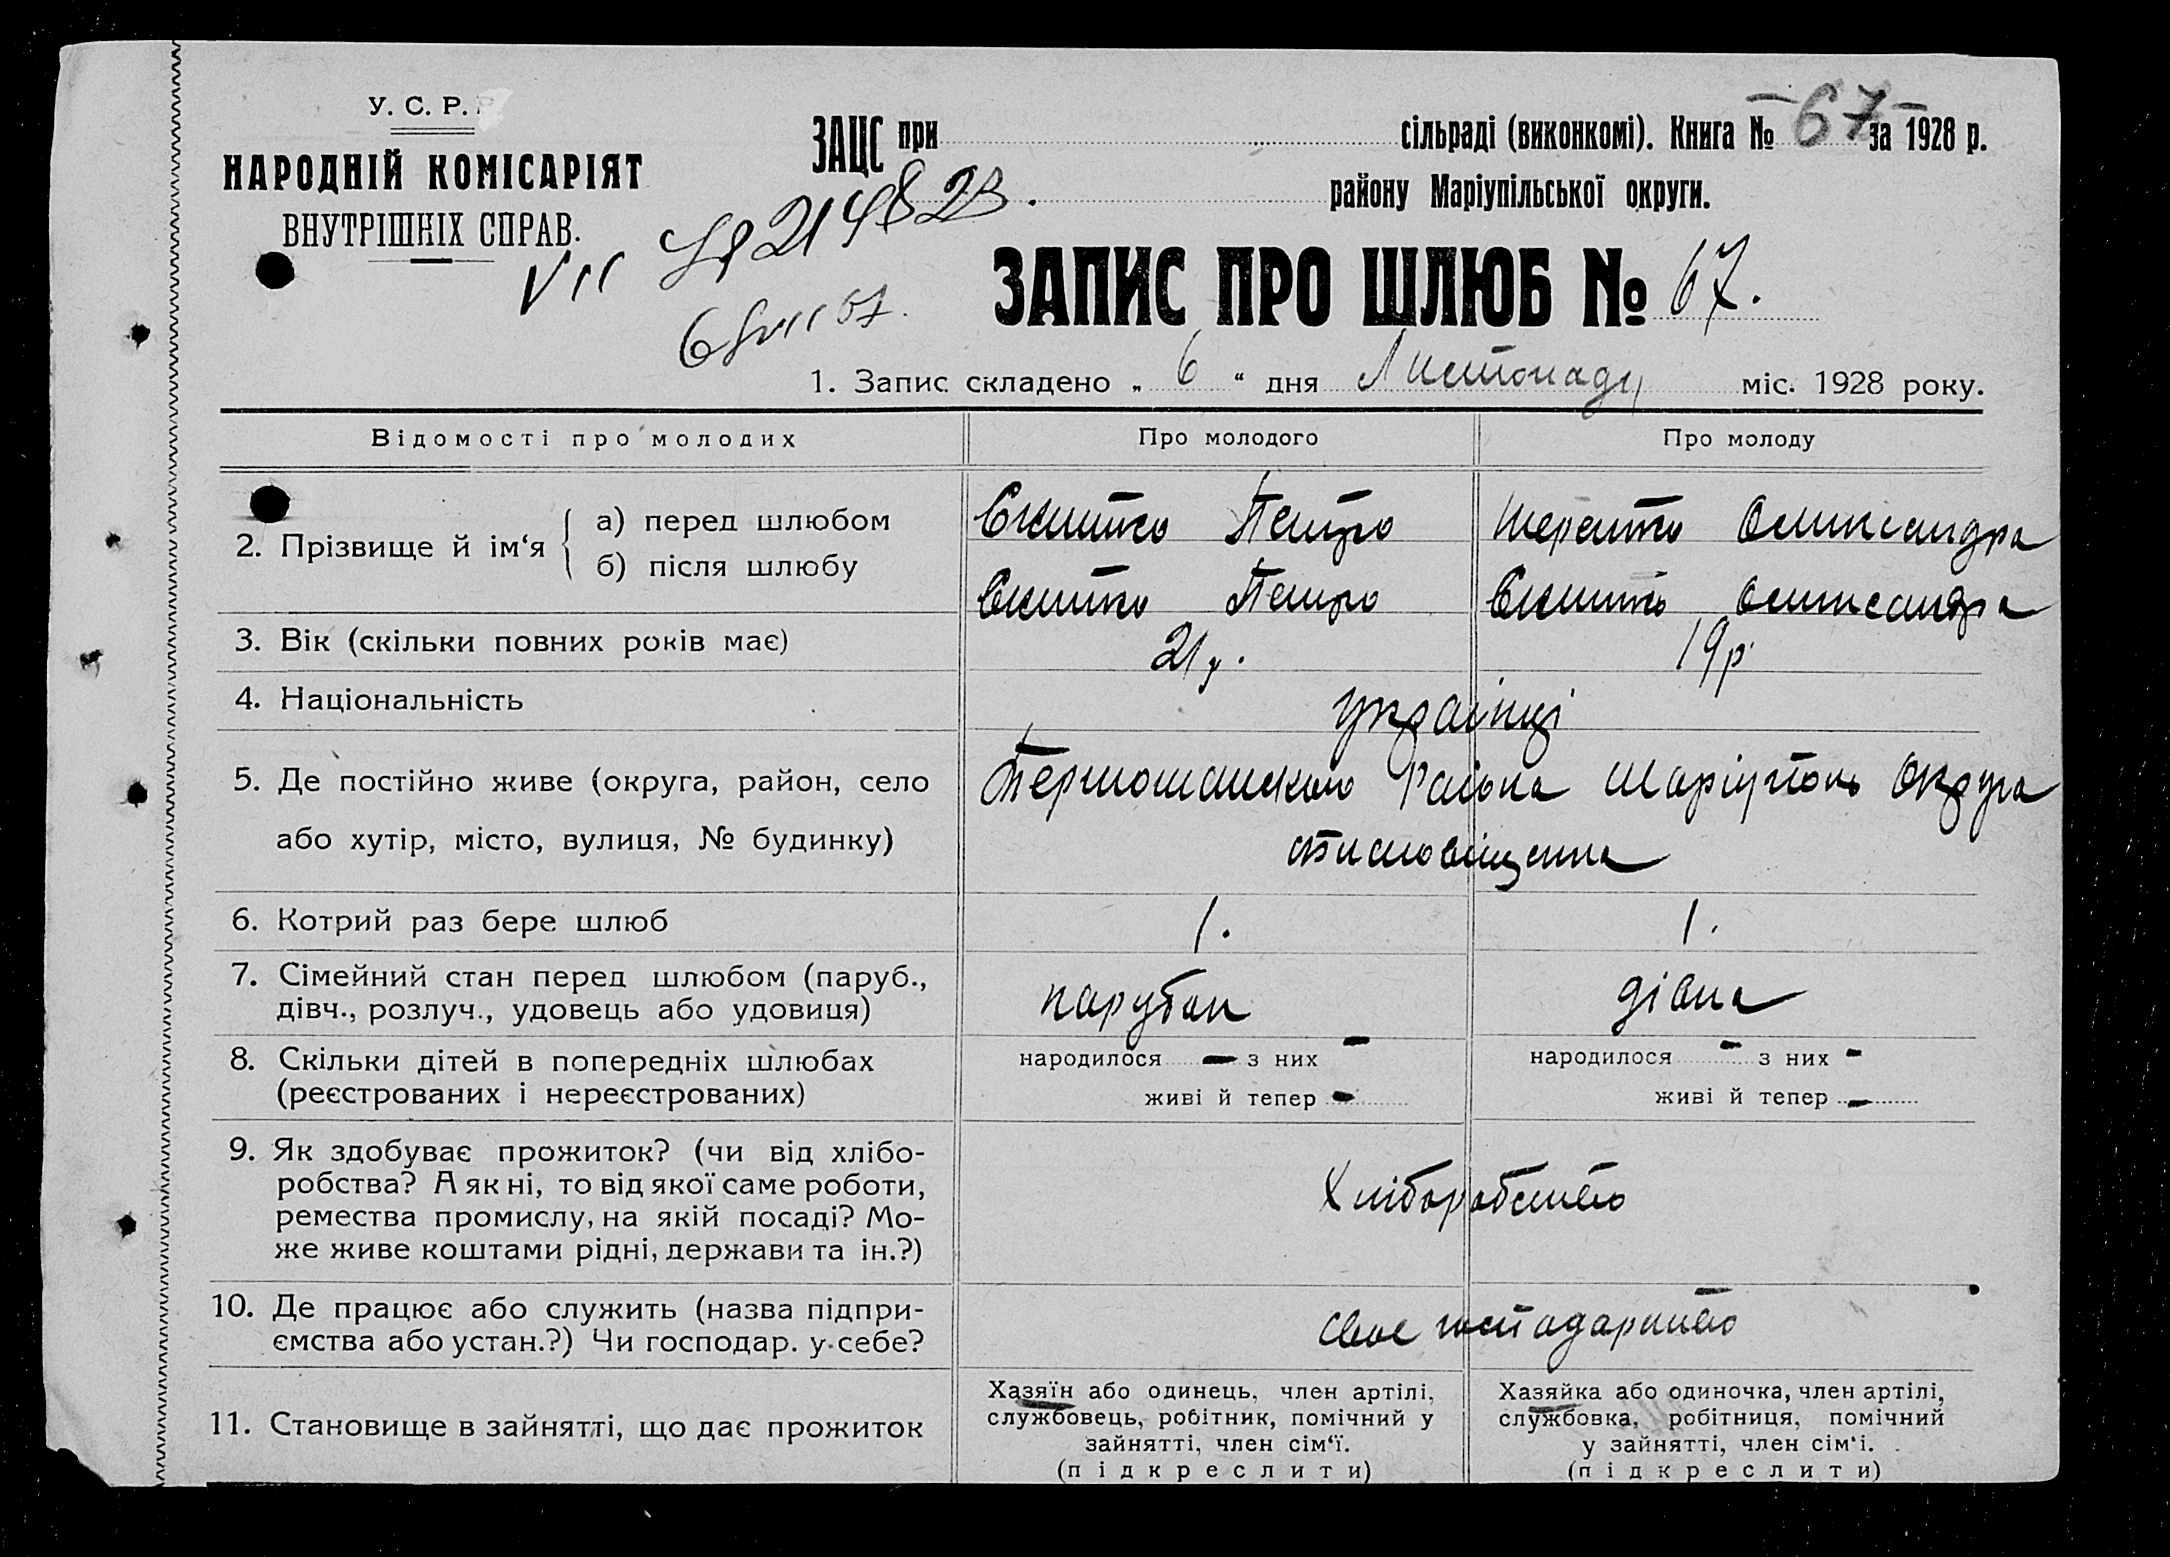 У. С. Р. Р
НАРОДНІЙ КОМІСАРІЯТ
ВНУТРІШНІХ СПРАВ.
ЗАЦС при сільраді (виконкомі). Книга № 67 за 1928 р.
району Маріупільської округи.
VII 214823
ЗАПИС ПРО ШЛЮБ № 67.
1. Запис складено „ 6 “ дня Листопаду міс. 1928 року.
Відомості про молодих Про молодого Про молоду
2. Прізвище й ім‘я
а) перед шлюбом Петро Олександра
б) після шлюбу Петро Олександра
3. Вік (скільки повних років має) 21 р. 19 р
4. Національність українці
5. Де постійно живе (округа, район, село Района Маріуполь Округа
або хутір, місто, вулиця, № будинку)
6. Котрий раз бере шлюб 1. 1.
7. Сімейний стан перед шлюбом (паруб.,
дівч., розлуч., удовець або удовиця) парубок дівка
8. Скільки дітей в попередніх шлюбах народилося — з них — народилося — з них —
(реєстрованих і нереєстрованих) живі й тепер — живі й тепер —
9. Як здобуває прожиток? (чи від хлібо-
робства? А як ні, то від якої саме роботи, Хліборобство
ремества промислу, на якій посаді? Мо-
же живе коштами рідні, держави та ін.?)
10. Де працює або служить (назва підпри-
ємства або устан.?) Чи господар. у себе? своє господарство
11. Становище в зайнятті, що дає прожиток
Хазяїн або одинець, член артілі,
службовець, робітник, помічний у
зайнятті, член сім‘ї.
(підкреслити)
Хазяйка або одиночка, член артілі,
службовка, робітниця, помічний
у зайнятті, член сім‘і.
(підкреслити)